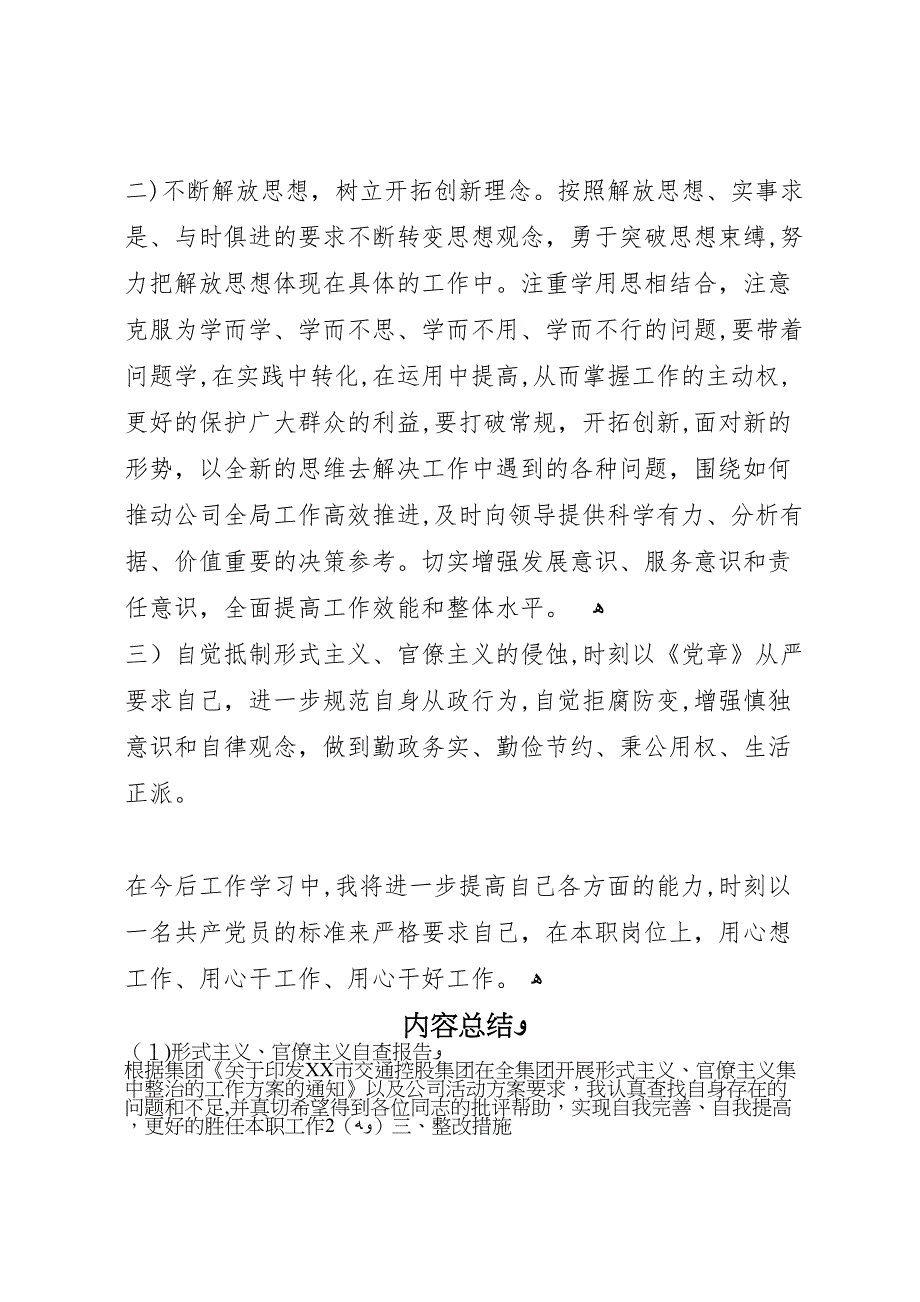 二)不断解放思想，树立开拓创新理念。按照解放思想、实事求
是、与时俱进的要求不断转变思想观念，勇于突破思想束缚,努
力把解放思想体现在具体的工作中。注重学用思相结合，注意
克服为学而学、学而不思、学而不用、学而不行的问题,要带着
问题学,在实践中转化,在运用中提高,从而掌握工作的主动权,
更好的保护广大群众的利益,要打破常规，开拓创新,面对新的
形势，以全新的思维去解决工作中遇到的各种问题，围绕如何
推动公司全局工作高效推进,及时向领导提供科学有力、分析有
据、价值重要的决策参考。切实增强发展意识、服务意识和责
任意识，全面提高工作效能和整体水平。 ﻫ
三）自觉抵制形式主义、官僚主义的侵蚀,时刻以《党章》从严
要求自己，进一步规范自身从政行为,自觉拒腐防变,增强慎独
意识和自律观念，做到勤政务实、勤俭节约、秉公用权、生活
正派。
在今后工作学习中,我将进一步提高自己各方面的能力,时刻以
一名共产党员的标准来严格要求自己，在本职岗位上，用心想
工作、用心干工作、用心干好工作。 ﻫ
内容总结و
（1)形式主义、官僚主义自查报告و
根据集团《关于印发XX市交通控股集团在全集团开展形式主义、官僚主义集
中整治的工作方案的通知》以及公司活动方案要求，我认真查找自身存在的
问题和不足,并真切希望得到各位同志的批评帮助，实现自我完善、自我提高
，更好的胜任本职工作2（وﻪ）三、整改措施